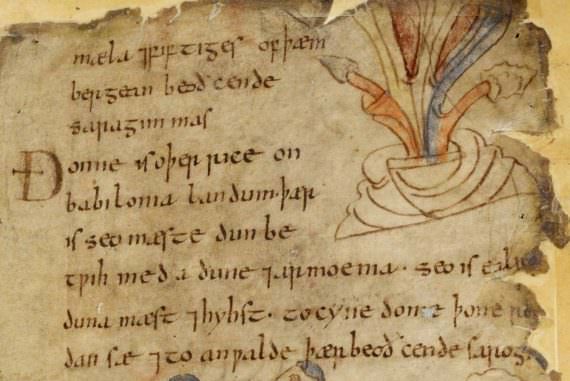 mæla ⁊ fiftiges of þæm
bergeam beoð cende
saragimmas
Ðonne is oþer rice on
babilonia landum· þær
is seo mæste dun be
tƿih meda dune ⁊ armoenia· seo is
duna mæst ⁊ hyhst· to cyne dome þone
dan sæ ⁊ to anƿalde þær beoð cende sarog